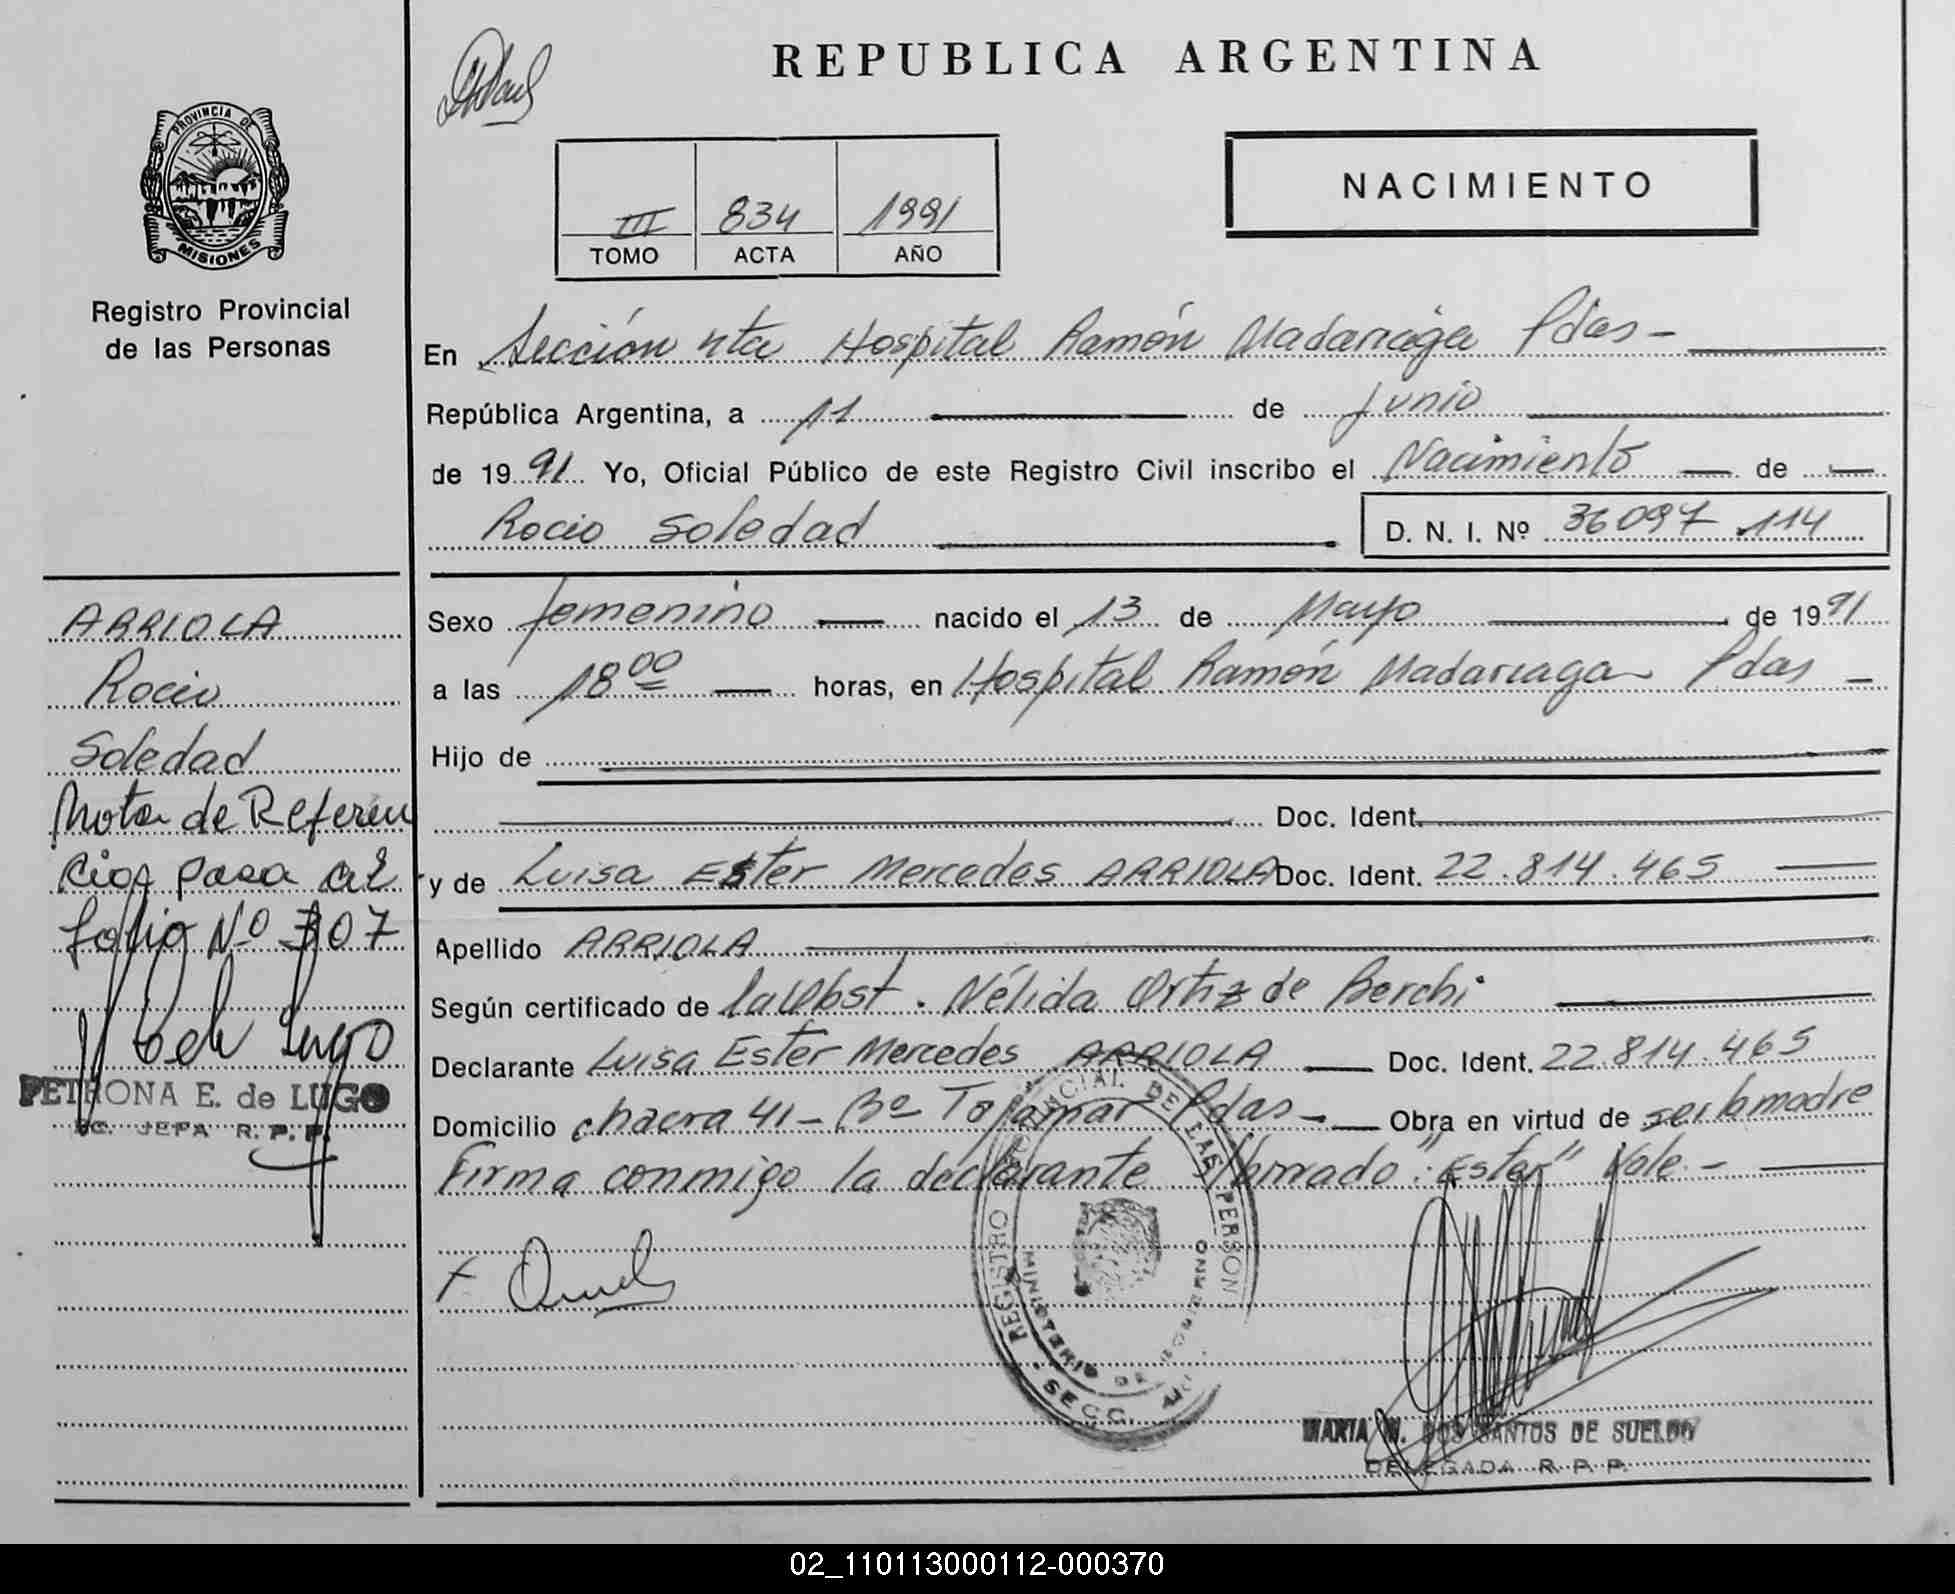 REPUBLICA ARGENTINA
PROVINCIA DE
MISIONES
Registro Provincial
de las Personas
III 834 1991
TOMO ACTA AÑO
NACIMIENTO
En Sección 4ta Hospital Ramón Madariaga Pdas -
República Argentina, a 11 de Junio
de 1991 Yo, Oficial Público de este Registro Civil inscribo el Nacimiento de
Rocio Soledad D. N. I. Nº 36097.114
Sexo femenino nacido el 13 de Mayo de 1991
a las 18 00 horas, en Hospital Ramón Madariaga Pdas -
Hijo de
Doc. Ident.
y de Luisa Ester Mercedes ARRIOLA Doc. Ident. 22.814.465
Apellido ARRIOLA
Según certificado de la Obst. Nélida Ortiz de Berchi
Declarante Luisa Ester Mercedes ARRIOLA Doc. Ident. 22.814.465
Domicilio chacra 41 - Bº Tajamar Pdas - Obra en virtud de ser la madre
Firma conmigo la declarante "Ester" Vale -
ARRIOLA
Rocio
Soledad
Nota de Referen
cias pasa al
folio Nº 307
PETRONA E. de LUGO
JEFA R. P. P.
REGISTRO PROVINCIAL DE LAS PERSON
MINISTERIO DE GOBIERNO
SECC.
MARIA N. DOS SANTOS DE SUELDO
DELEGADA R. P. P.
02_110113000112-000370